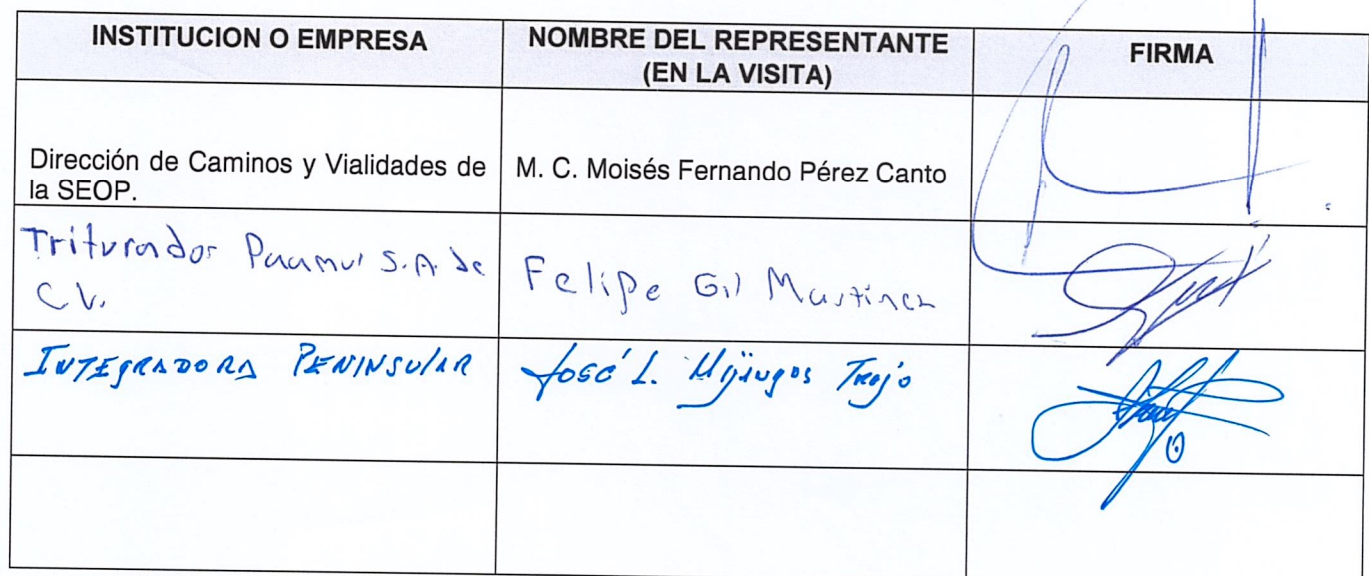 INSTITUCION O EMPRESA
NOMBRE DEL REPRESENTANTE
(EN LA VISITA)
FIRMA
Dirección de Caminos y Vialidades de
la SEOP.
M. C. Moisés Fernando Pérez Canto
Triturador Paamul S.A. de
C.V.
Felipe Gil Martínez
INTEGRADORA PENINSULAR
José L. Mijangos Trejo